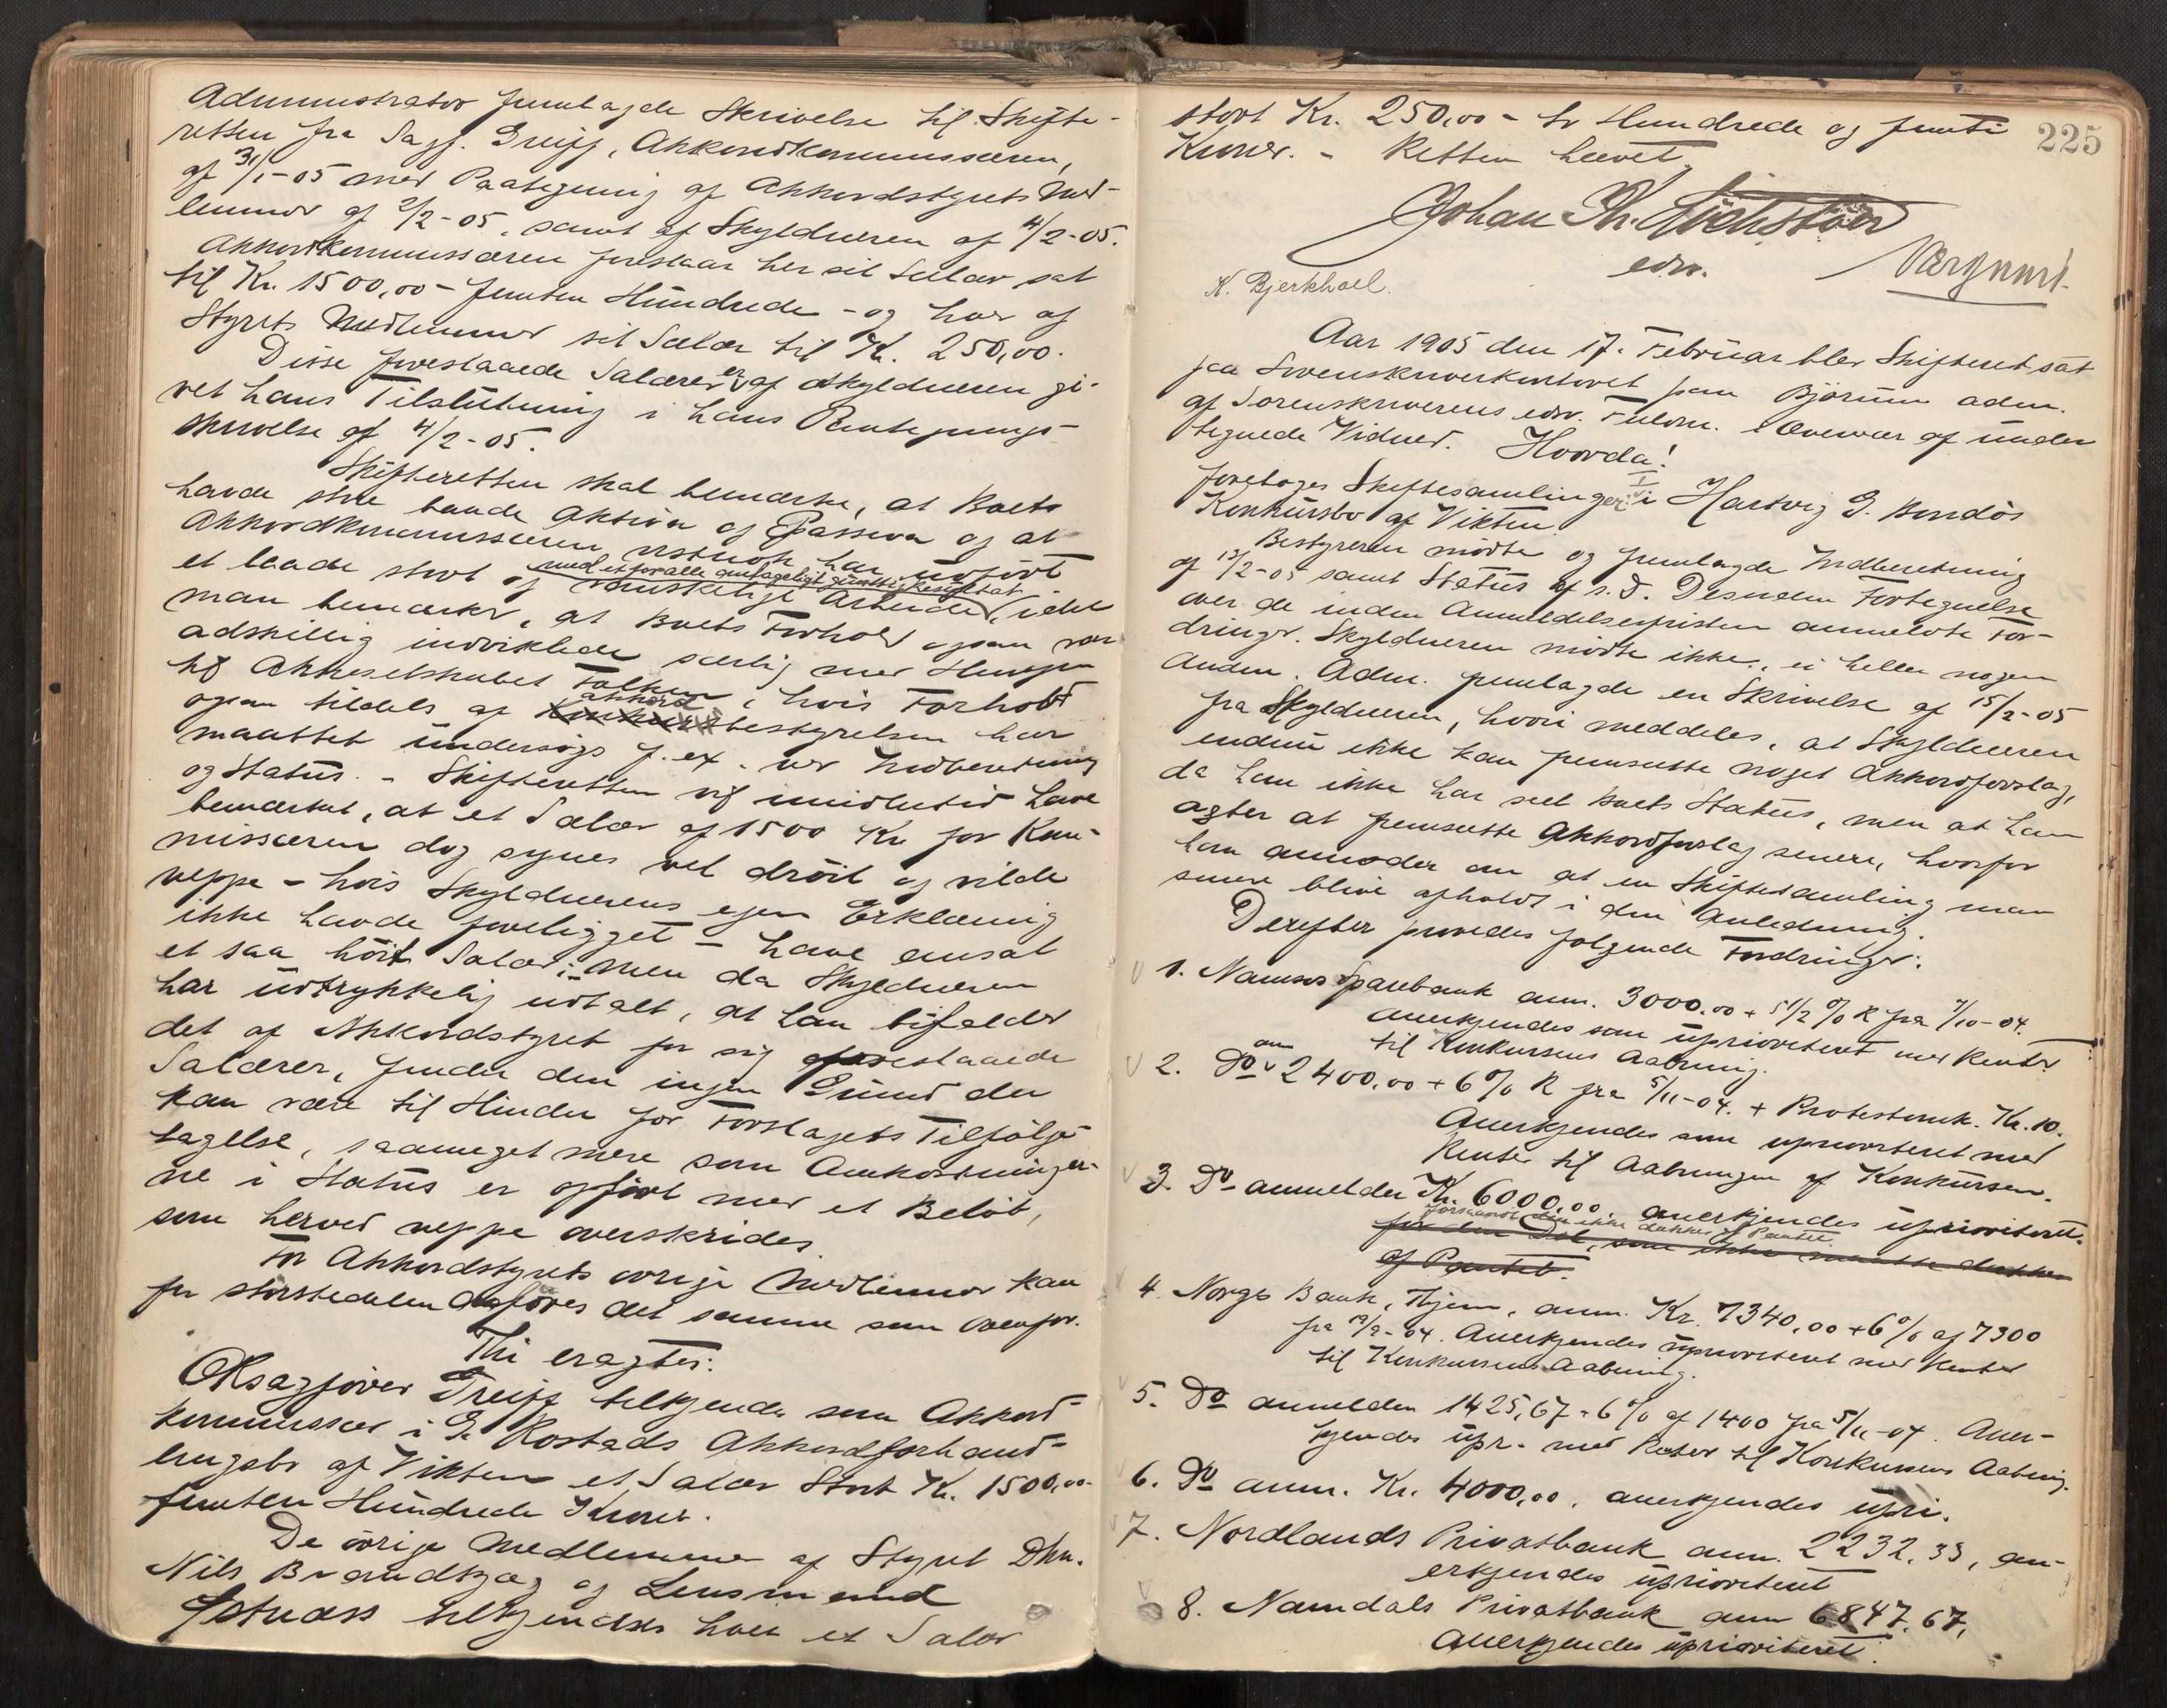 Administrator fremlagde Skrivelse til Skifte-
retten fra Sagf. Greiff, Akkordkommissæren,
af 31/1-05 med Paategning af Akkordstyrets Med-
lemmer af 2/2-05, samt af Skyldneren af 4/2-05.
Akkordkommissæren foreslaar her sit Salær sat
til Kr. 1500,00 - femten Hundrede - og hver af
Styrets Medlemmer sit Salær til Kr. 250,00.
Disse foreslaaede Salærer er af Skyldneren gi-
vet hans Tilslutning i hans Paategnings-
skrivelse af 4/2-05.
Skifteretten skal bemærke, at Boets
havde store baade Aktiva og Passiva og at
Akkordkommissæren har udført
et baade stort og vanskeligt Arbeide, idet
med et for alle antageligt gunstigt Resultat
man bemærker, at Boets Forhold ogsaa var
adskillig indviklede særlig med Hensyn
til Aktieselskabet Falken, i hvis Forhold
ogsaa tildels af akkordbestyrelsen har
maattet undersøgs f. ex. ved Indberetning
og Status. - Skifteretten vil imidlertid have
bemærket, at et Salær af 1500 Kr. for Kom-
missæren dog synes vel drøit og vilde
neppe - hvis Skyldnerens egen Erklæring
ikke havde foreligget - have ansat
et saa høit Salær; - Men da Skyldneren
har udtrykkelig udtalt, at han bifalder
det af Akkordstyret for sig foreslaaede
Salærer, finder den ingen Grund der
kan være til Hinder for Forslagets Tilfølge-
tagelse, saameget mere som Omkostninger-
ne i Status er opført med et Beløb,
som herved neppe overskrides.
For Akkordstyrets øvrige Medlemmer kan
for størstedelen anføres det samme som ovenfor.
Thi eragtes:
Oksagfører Greiff tilkjendes som Akkord-
kommissær i G. Rostads Akkordforhand-
lingsbo af Vikten et Salær stort Kr. 1500,00
femten Hundrede Kroner.
De øvrige Medlemmer af Styret Dhrr.
Nils Brandtzæg og Lensmand
tilkjendes hver et Salær
225
stort Kr. 250,00 - to Hundrede og femti
Kroner. - Retten hævet.
Johan Th.
edsv.
K. Bjerkhoel.
Aar 1905 den 17. Februar blev Skifteret sat
paa Sorenskriverkontoret paa Bjørum adm.
af Sorenskriverens edsv. Fuldm. i Overvær af under
tegnede Vidner. Hvorda!
foretoges Skiftesamlinger i Hartvig G. Bondøs
Konkursbo af Vikten.
Bestyreren mødte og fremlagde Indberetning
af 13/2-05 samt Status af s. D. Desuden Fortegnelse
over de inden Anmeldelsesfristen anmeldte For-
dringer. Skyldneren mødte ikke, ei heller nogen
Anden. Adm. fremlagde en Skrivelse af 15/2-05
fra Skyldneren, hvori meddeles, at Skyldneren
endnu ikke kan fremsætte noget Akkordforslag,
da han ikke har seet Boets Status, men at han
agter at fremsætte Akkordforslag senere, hvorfor
han anmoder om at en Skiftesamling maa
senere blive afholdt i den Anledning.
Derefter prøvedes følgende Fordringer:
1. Namsos Sparebank anm. 3000,00 + 5 1/2 % R fra 7/10-04.
Anerkjendes som uprioriteret med Renter
til Konkursens Aabning.
2. Do anm 2400,00 + 6 % R fra 5/11-04. + Protestomk. Kr. 10.
Anerkjendes som uprioriteret med
Renter til Aabningen af Konkursen.
3. Do anmelder Kr. 6000,00. anerkjendes uprioriteret.
forsaavidt den ikke dækkes af Pantet.
for den Del, som ikke maatte dækkes
af Pantet.
4. Norges Bank, Thjem, anm. Kr. 7340,00 + 6 % af 7300
fra 19/9-04. Anerkjendes uprioriteret med Renter
til Konkursens Aabning.
5. Do anmelder 1425,67 + 6 % af 1400 fra 5/11-04. Aner-
kjendes upr. med Renter til Konkursens Aabning.
6. Do anm. Kr. 4000,00. anerkjendes upri.
7. Nordlands Privatbank anm. 2232.33, an-
erkjendes uprioriteret
8. Namdals Privatbank anm 6847.67,
Anerkjendes uprioriteret.